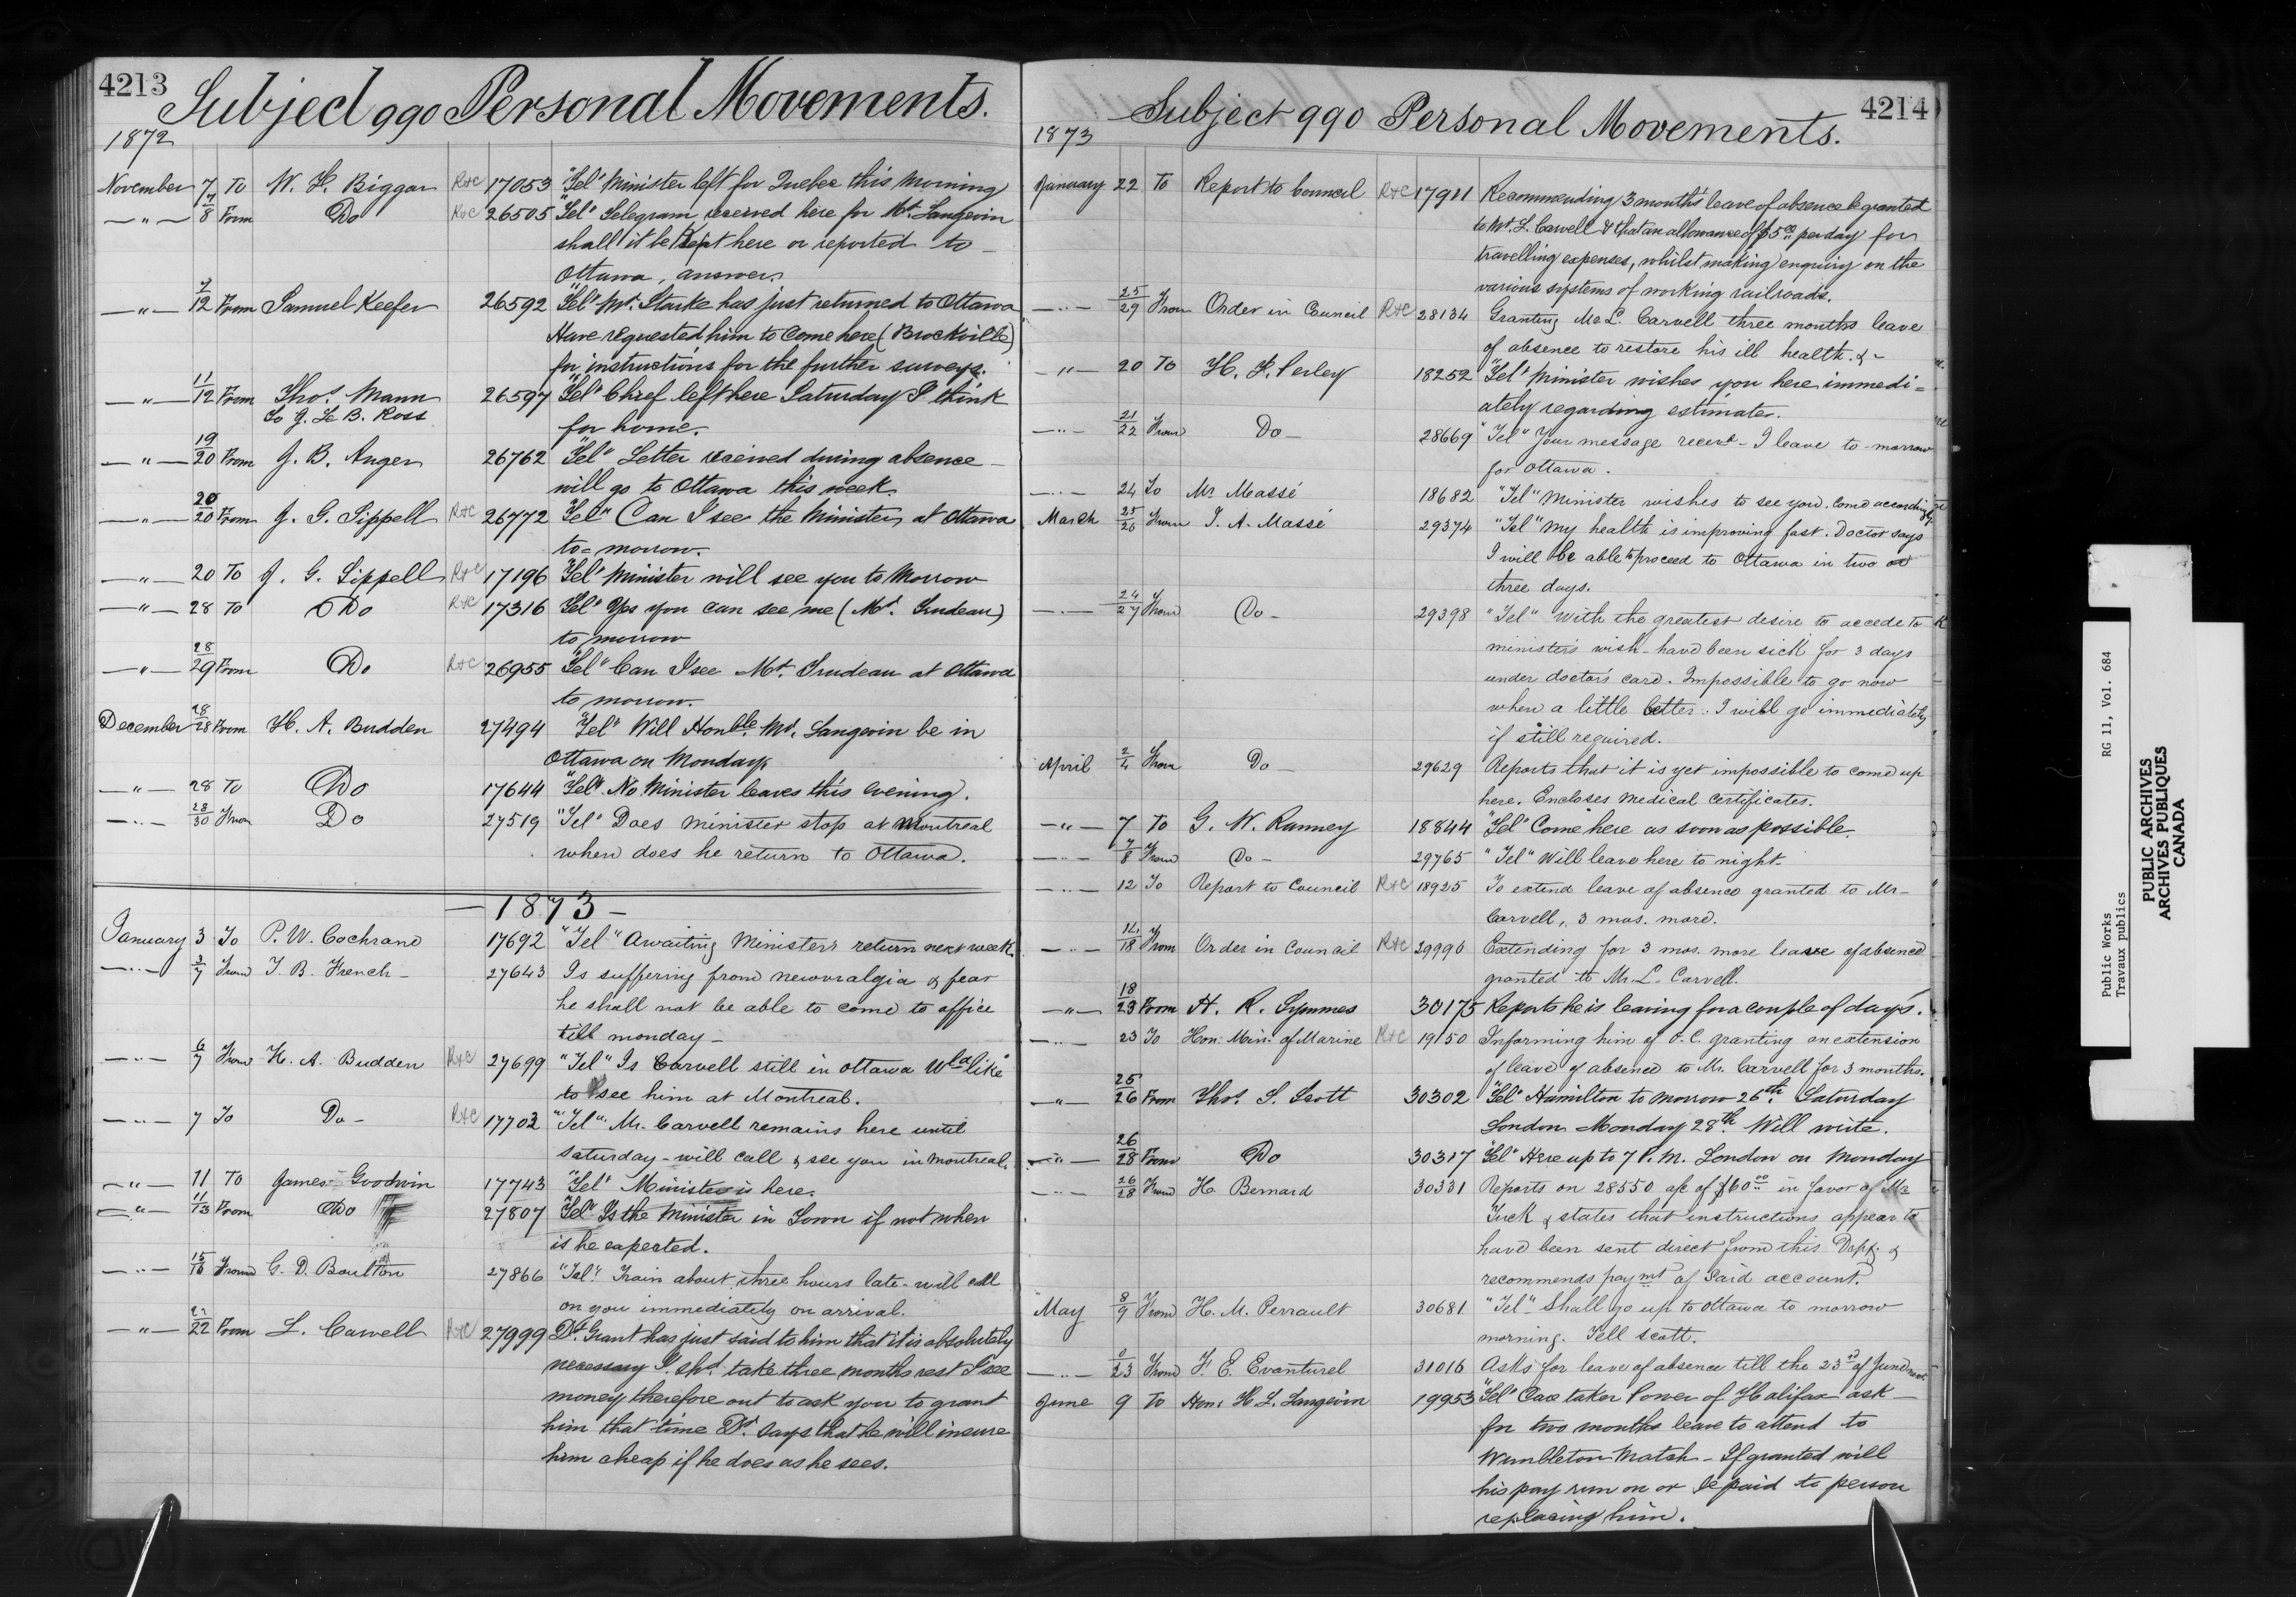 4213
Subject 990 Personal Movements.
1872
November 7 To W. H. Biggar R+C 17053 "Tel" Minister left for Quebec this Morning
—"— 7/8 From Do R+C 26505 "Tel" Telegram received here for Mr. Langevin
shall it be kept here or reported to
Ottawa, answer.
—"— 7/12 From Samuel Keefer 26592 "Tel" Mr. Starke has just returned to Ottawa
Have requested him to come here (Brockville)
for instructions for the further surveys.
—"— 11/12 From Thos. Mann 26597 "Tel" Chief left here Saturday I think
to J. Le B. Ross
for home.
—"— 19/20 From J. B. Anger 26762 "Tel" Letter received during absence
will go to Ottawa this week.
—"— 20/20 From J. G. Sippell R+C 26772 "Tel" Can I see the Minister at Ottawa
to=morrow.
—"— 20 To J. G. Sippell R+C 17196 "Tel" Minister will see you to Morrow
—"— 28 To Do R+C 17316 "Tel" Yes you can see me (Mr. Trudeau)
to morrow
—"— 28/29 From Do R+C 26955 "Tel" Can I see Mr. Trudeau at Ottawa
to morrow.
December 28/28 From H. A. Budden 27494 "Tel" Will Honble. Mr. Langevin be in
Ottawa on Monday.
—"— 28 To Do 17644 "Tel" No Minister leaves this evening.
—"— 28/30 From Do 27519 "Tel" Does Minister stop at Montreal
when does he return to Ottawa.
— 1873 —
January 3 To P. W. Cochrane 17692 "Tel" Awaiting Ministers return next week.
—"— 3/7 From T. B. French - 27643 Is suffering from neuvralgia & fear
he shall not be able to come to office
till monday -
—"— 6/7 From H. A. Budden R+C 27699 "Tel" Is Carvell still in Ottawa Wld like
to see him at Montreal.
—"— 7 To Do - R+C 17702 "Tel" Mr. Carvell remains here until
saturday - will call & see you in Montreal.
—"— 11 To James Goodwin 17743 "Tel" Minister is here.
—"— 11/13 From Do 27807 "Tel" Is the Minister in Town if not when
is he expected.
—"— 15/16 From G. D. Boulton 27866 "Tel" Train about three hours late - will call
on you immediately on arrival.
—"— 22 From L. Carvell R+C 27999 Dr. Grant has just said to him that it is absolutely
necessary I shd. take three months rest I see
money therefore out to ask you to grant
him that time Dr. says that he will insure
him cheap if he does as he sees.
4214
Subject 990 Personal Movements.
1873
January 22 To Report to Council R+C 17911 Recommending 3 month's leave of absence be granted
to Mr. L. Carvell & that an allowance of $5.00 per day for
travelling expenses, whilst making enquiry on the
various systems of working railroads.
—"— 25/29 From Order in Council R+C 28134 Granting Mr L. Carvell three months leave
of absence to restore his ill health. & -
—"— 20 To H. F. Perley 18252 "Tel" Minister wishes you here immedi=
ately regarding estimates.
—"— 21/22 From Do - 28669 "Tel" Your message recevd - I leave to-morrow
for Ottawa.
—"— 24 To Mr Massé 18682 "Tel" Minister wishes to see you. Come accordingly.
March 25/26 From J. A. Massé 29374 "Tel" My health is improving fast. Doctor says
I will be able to proceed to Ottawa in two or
three days.
—"— 24/27 From Do - 29398 "Tel" With the greatest desire to accede to
minister's wish - have been sick for 3 days
under doctor's card. Impossible to go now
when a little better. I will go immediately
if still required.
April 2/4 From Do - 29629 Reports that it is yet impossible to come up
here. Encloses Medical Certificates.
—"— 7 To G. W. Ranney 18844 "Tel" Come here as soon as possible.
—"— 7/8 From Do - 29765 "Tel" Will leave here to night.
—"— 12 To Report to Council R+C 18925 To extend leave of absence granted to Mr-
Carvell, 3 mos. more.
—"— 14/18 From Order in Council R+C 29996 Extending for 3 mos. more leave of absence
granted to Mr. L. Carvell.
—"— 18/23 From H. R. Symmes 30175 Reports he is leaving for a couple of days.
—"— 23 To Hon. Min. of Marine R+C 19150 Informing him of O.C. granting an extension
of leave of absence to Mr. Carvell for 3 months.
—"— 25/26 From Thos. S. Scott 30302 "Tel" Hamilton to morrow 26th. Saturday
London Monday 28th. Will write.
—"— 26/28 From Do 30317 "Tel" Here up to 7 P.M. London on Monday
—"— 26/28 From H. Bernard 30331 Reports on 28550 a/c of $60.00 in favor of Mr
Tuck & states that instructions appear to
have been sent direct from this Dept. &
recommends paymt of said account.
May 8/9 From H. M. Perrault 30681 "Tel" Shall go up to Ottawa to morrow
morning. Tell Scott.
—"— 23 From F. E. Evanturel 31016 Asks for leave of absence till the 23rd of June next
June 9 To Hon. H. L. Langevin 19953 "Tel" Care taker Power of Halifax ask
for two months leave to attend to
Wimbleton Match - If granted will
his pay run on or be paid to person
replacing him.
Public Works RG 11, Vol. 684
Travaux publics
PUBLIC ARCHIVES
ARCHIVES PUBLIQUES
CANADA